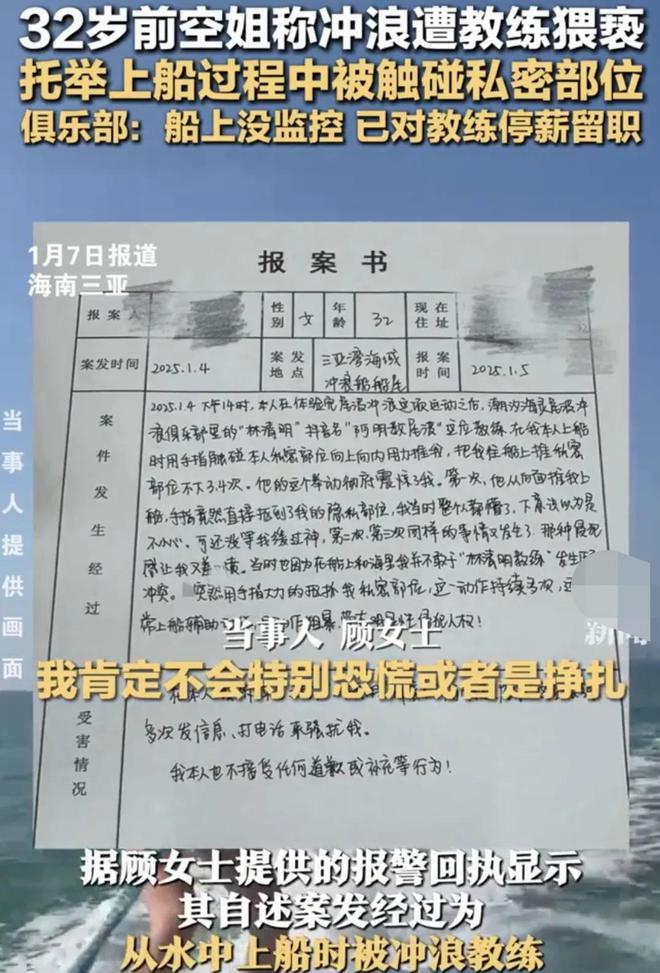 32岁前空姐称冲浪遭教练猥亵
托举上船过程中被触碰私密部位
俱乐部：船上没监控 已对教练停薪留职
1月7日报道
海南三亚
报案书
报案人
性别 女 年龄 32 现在住址
案发时间 2025.1.4 案发地点 三亚湾海域冲浪船船尾 报案时间 2025.1.5
案件发生经过
2025.1.4 下午14时，本人在体验完尾波冲浪这项运动之后，潮汐海灵尾波冲
浪俱乐部里的“林清明”抖音名“阿明教尾浪”这位教练，在我本人上船
时用手指触碰本人私密部位向上向内用力推我，把我往船上推私密
部位不下3.4次。他的这个举动彻底震惊了我。第一次，他从后面推我上
船，手指竟然直接抵到了我的隐私部位，我当时整个人都懵了，下意识以为是
不小心。可还没等我缓过神，第二次、第三次同样的事情又发生了
让我又羞 愤。当时也因为在船上和海里我并不敢于“林清明教练”发生
冲突。 突然用手指大力的 我私密部位，这一动作持续多次，
常上船辅助
当事人提供画面
当事人 顾女士
我肯定不会特别恐慌或者是挣扎
受害情况
多次发信息、打电话来骚扰我。
我本人也不接受任何道歉或补充等行为！
据顾女士提供的报警回执显示
其自述案发经过为
从水中上船时被冲浪教练